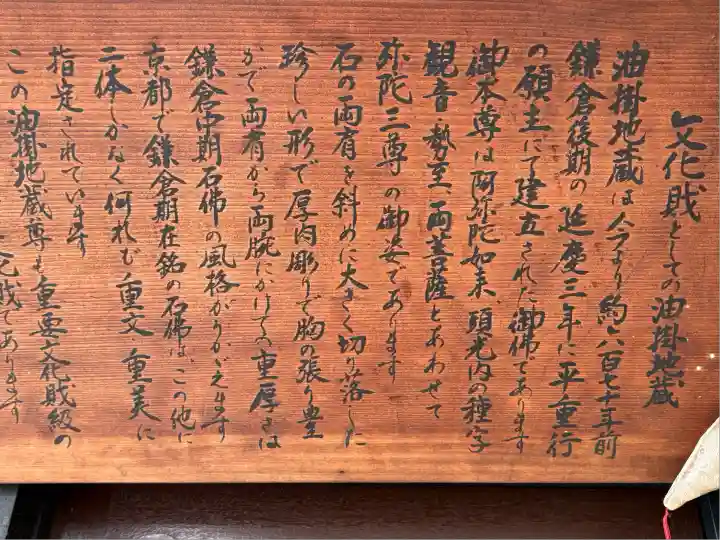 文化財としての油掛地蔵
油掛地蔵は今より約六百七十年前
鎌倉後期の延慶三年に平重行
の願主にて建立された御佛であります
御本尊は阿弥陀如来、頭光内の種字
観音・勢至、両菩薩とあわせて
弥陀三尊の御姿であります
石の両肩を斜めに大きく切り落した
珍しい形で厚肉彫りで胸の張り豊
かで両肩から両腕にかけての重厚さは
鎌倉中期石佛の風格がうかがえます
京都で鎌倉期在銘の石佛は、この他に
二体しかなく何れも重文・重美に
指定されています
この油掛地蔵尊も重要文化財級の
文化財であります